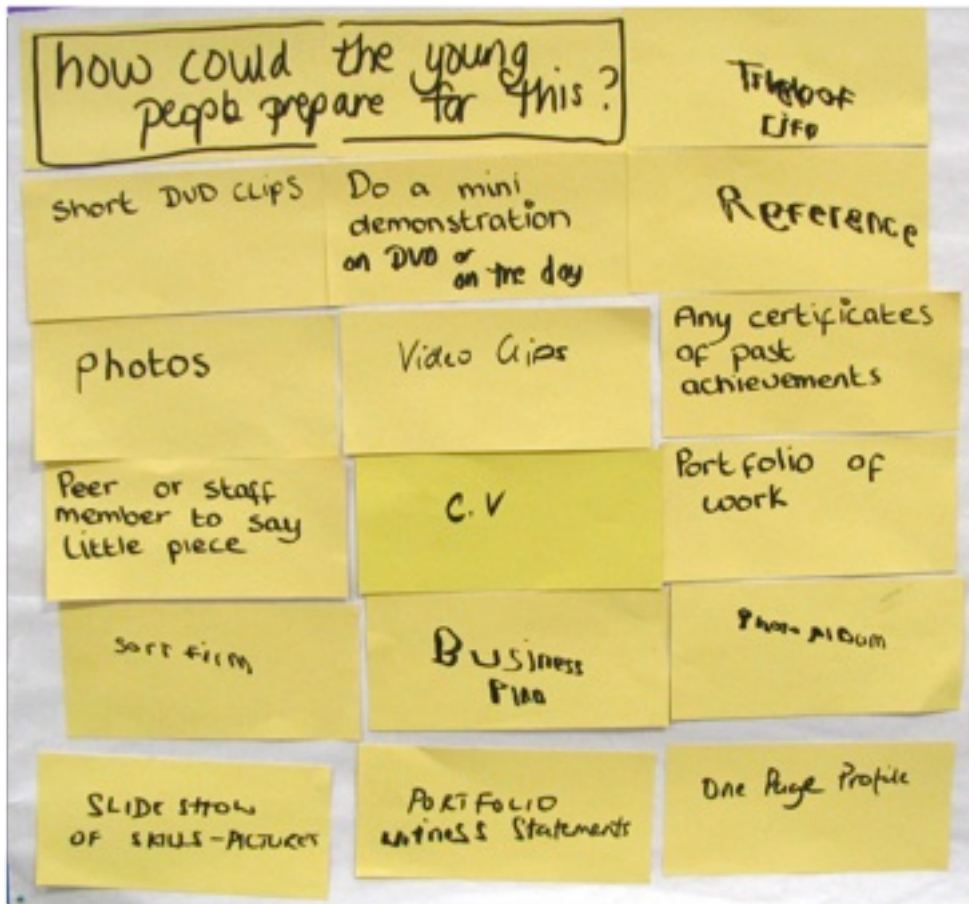 how could the young
people prepare for this?
of
Life
Short DVD CLips
Do a mini
demonstration
on DVD or
on the day
Reference
Photos
Video Clips
Any certificates
of past
achievements
Peer or staff
member to say
Little piece
C.V
Portfolio of
work
Sort film
Business
Plan
Photo Album
SLIDE SHOW
OF SKILLS-PICTURES
PORTFOLIO
witness Statements
One Page Profile